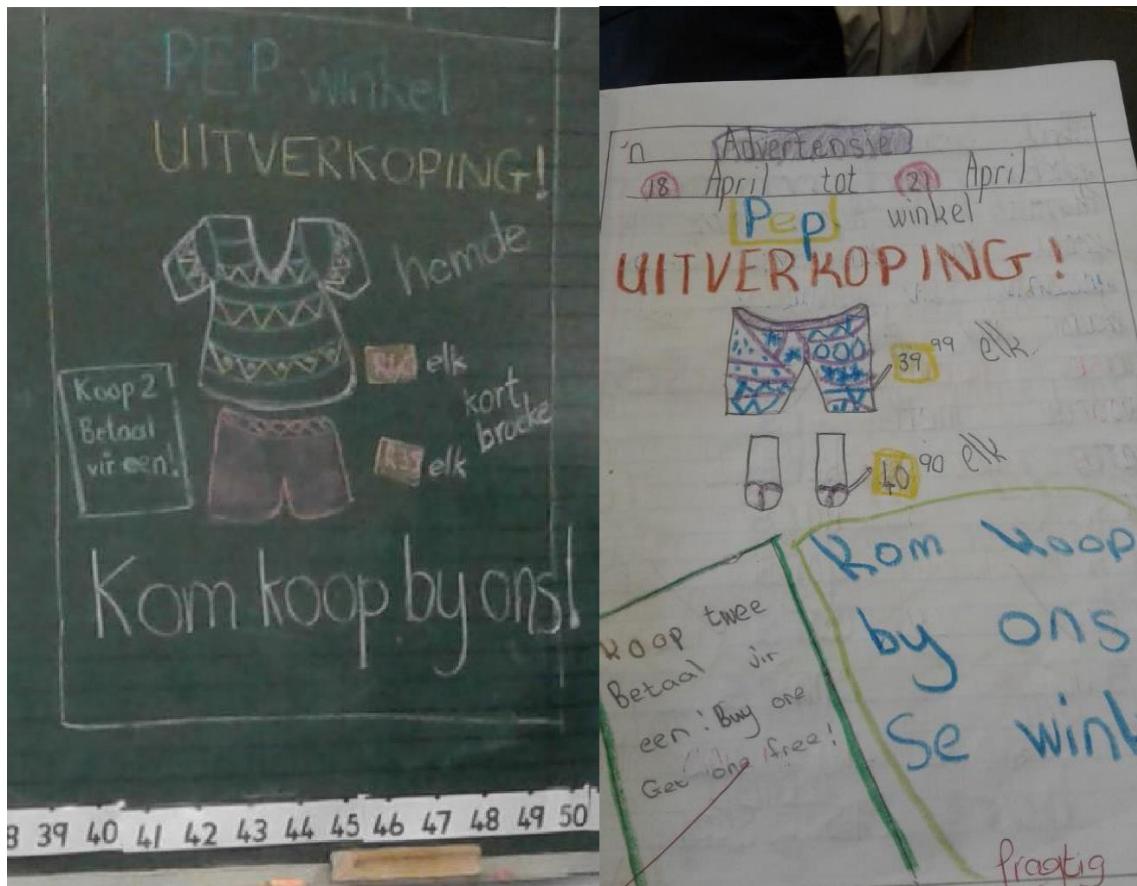 PEP winkel
UITVERKOPING!
hemde
elk
kort
broeke
R35 elk
Koop 2
Betaal
vir een!
Kom koop by ons!
39 40 41 42 43 44 45 46 47 48 49 50
'n Advertensie
18 April tot 21 April
Pep winkel
UITVERKOPING!
39 99 elk
40 90 elk
Koop twee
Betaal vir
een! Buy one
Get one free!
Kom koop
by ons
Se wink
Pragtig